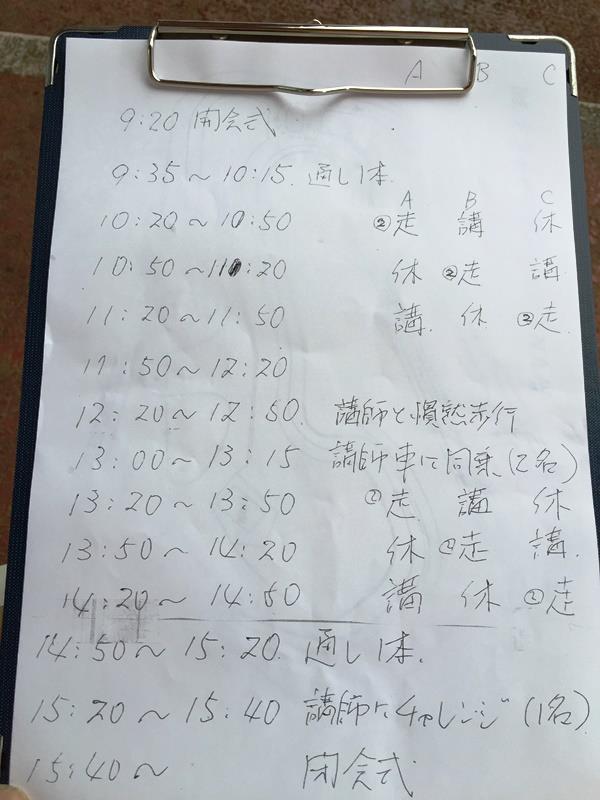 A B C
9:20 開会式
9:35～10:15. 通し1本.
A B C
10:20～10:50 ②走 講 休
10:50～11:20 休 ②走 講
11:20～11:50 講. 休 ②走.
11:50～12:20
12:20～12:50. 講師と慣熟歩行
13:00～13:15 講師車に同乗(2名)
13:20～13:50 ②走 講 休
13:50～14:20 休 ②走 講.
14:20～14:50 講 休 ②走
14:50～15:20. 通し1本.
15:20～15:40 講師にチャレンジ(1名)
15:40～ 閉会式